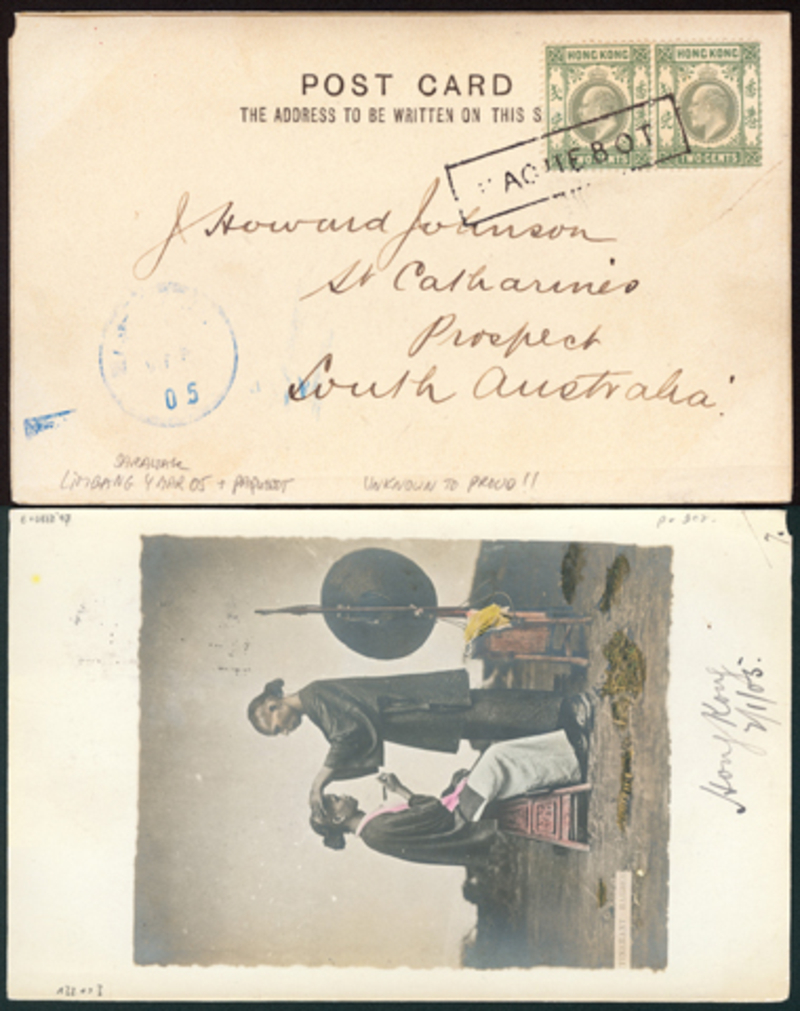 POST CARD
THE ADDRESS TO BE WRITTEN ON THIS S
HONG KONG
HONG KONG
TWO CENTS
TWO CENTS
PAQUEBOT
J Howard Johnson
St Catharines
Prospect
South Australia.
05
SARAWAK
LIMBANG 4 APR 05 + PAQUEBOT
UNKNOWN TO PROUD!!
Hong Kong
2/1/05.
ITINERANT BARBER